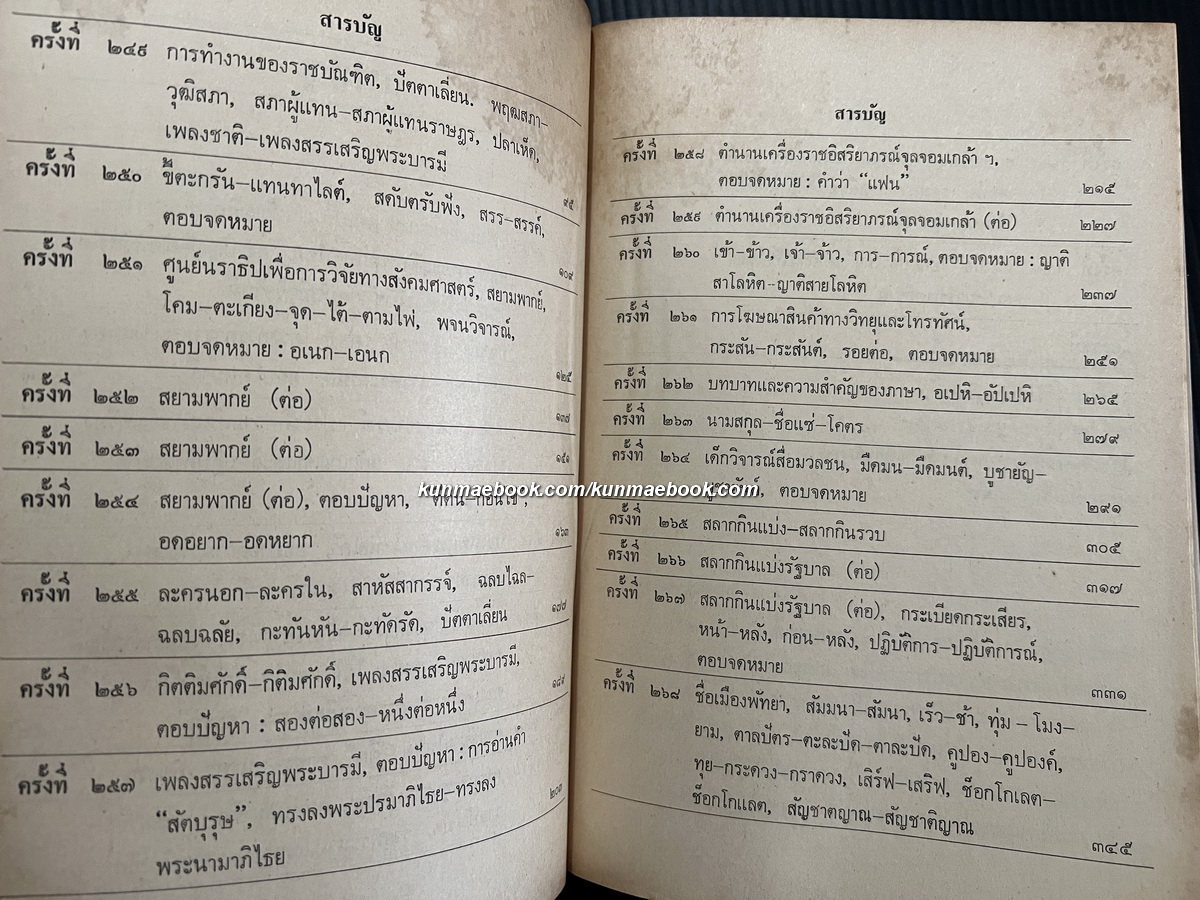 สารบัญ
ครั้งที่ ๒๔๙ การทำงานของราชบัณฑิต, ปัตตาเลี่ยน. พฤฒสภา-
วุฒิสภา, สภาผู้แทน-สภาผู้แทนราษฎร, ปลาเห็ด,
เพลงชาติ-เพลงสรรเสริญพระบารมี ๙๕
ครั้งที่ ๒๕๐ ขี้ตะกรัน-แทนทาไลต์, สดับตรับฟัง, สรร-สรรค์,
ตอบจดหมาย ๑๐๙
ครั้งที่ ๒๕๑ ศูนย์นราธิปเพื่อการวิจัยทางสังคมศาสตร์, สยามพากย์,
โคม-ตะเกียง-จุด-ไต้-ตามไฟ, พจนวิจารณ์,
ตอบจดหมาย : อเนก-เอนก ๑๒๕
ครั้งที่ ๒๕๒ สยามพากย์ (ต่อ) ๑๓๗
ครั้งที่ ๒๕๓ สยามพากย์ (ต่อ) ๑๕๑
ครั้งที่ ๒๕๔ สยามพากย์ (ต่อ), ตอบปัญหา,
อดอยาก-อดหยาก ๑๖๓
ครั้งที่ ๒๕๕ ละครนอก-ละครใน, สาหัสสากรรจ์, ฉลบไฉล-
ฉลบฉลัย, กะทันหัน-กะทัดรัด, ปัตตาเลี่ยน ๑๗๗
ครั้งที่ ๒๕๖ กิตติมศักดิ์-กิติมศักดิ์, เพลงสรรเสริญพระบารมี,
ตอบปัญหา : สองต่อสอง-หนึ่งต่อหนึ่ง ๑๘๙
ครั้งที่ ๒๕๗ เพลงสรรเสริญพระบารมี, ตอบปัญหา : การอ่านคำ
“สัตบุรุษ”, ทรงลงพระปรมาภิไธย-ทรงลง
พระนามาภิไธย ๒๐๓
สารบัญ
ครั้งที่ ๒๕๘ ตำนานเครื่องราชอิสริยาภรณ์จุลจอมเกล้า ฯ,
ตอบจดหมาย : คำว่า “แฟน” ๒๑๕
ครั้งที่ ๒๕๙ ตำนานเครื่องราชอิสริยาภรณ์จุลจอมเกล้า (ต่อ) ๒๒๗
ครั้งที่ ๒๖๐ เข้า-ข้าว, เจ้า-จ้าว, การ-การณ์, ตอบจดหมาย : ญาติ
สาโลหิต-ญาติสายโลหิต ๒๓๗
ครั้งที่ ๒๖๑ การโฆษณาสินค้าทางวิทยุและโทรทัศน์,
กระสัน-กระสันต์, รอยต่อ, ตอบจดหมาย ๒๕๑
ครั้งที่ ๒๖๒ บทบาทและความสำคัญของภาษา, อเปหิ-อัปเปหิ ๒๖๕
ครั้งที่ ๒๖๓ นามสกุล-ชื่อแซ่-โคตร ๒๗๙
ครั้งที่ ๒๖๔ เด็กวิจารณ์สื่อมวลชน, มืดมน-มืดมนต์, บูชายัญ-
ตอบจดหมาย ๒๙๑
kunmaebook.com/kunmaebook.com
ครั้งที่ ๒๖๕ สลากกินแบ่ง-สลากกินรวบ ๓๐๕
ครั้งที่ ๒๖๖ สลากกินแบ่งรัฐบาล (ต่อ) ๓๑๗
ครั้งที่ ๒๖๗ สลากกินแบ่งรัฐบาล (ต่อ), กระเบียดกระเสียร,
หน้า-หลัง, ก่อน-หลัง, ปฏิบัติการ-ปฏิบัติการณ์,
ตอบจดหมาย ๓๓๑
ครั้งที่ ๒๖๘ ชื่อเมืองพัทยา, สัมมนา-สัมนา, เร็ว-ช้า, ทุ่ม - โมง-
ยาม, ตาลปัตร-ตะละปัด-ตาละปัด, คูปอง-คูปองค์,
ทุย-กระดวง-กราดวง, เสิร์ฟ-เสริฟ, ช็อกโกเลต-
ช็อกโกแลต, สัญชาตญาณ-สัญชาติญาณ ๓๔๕